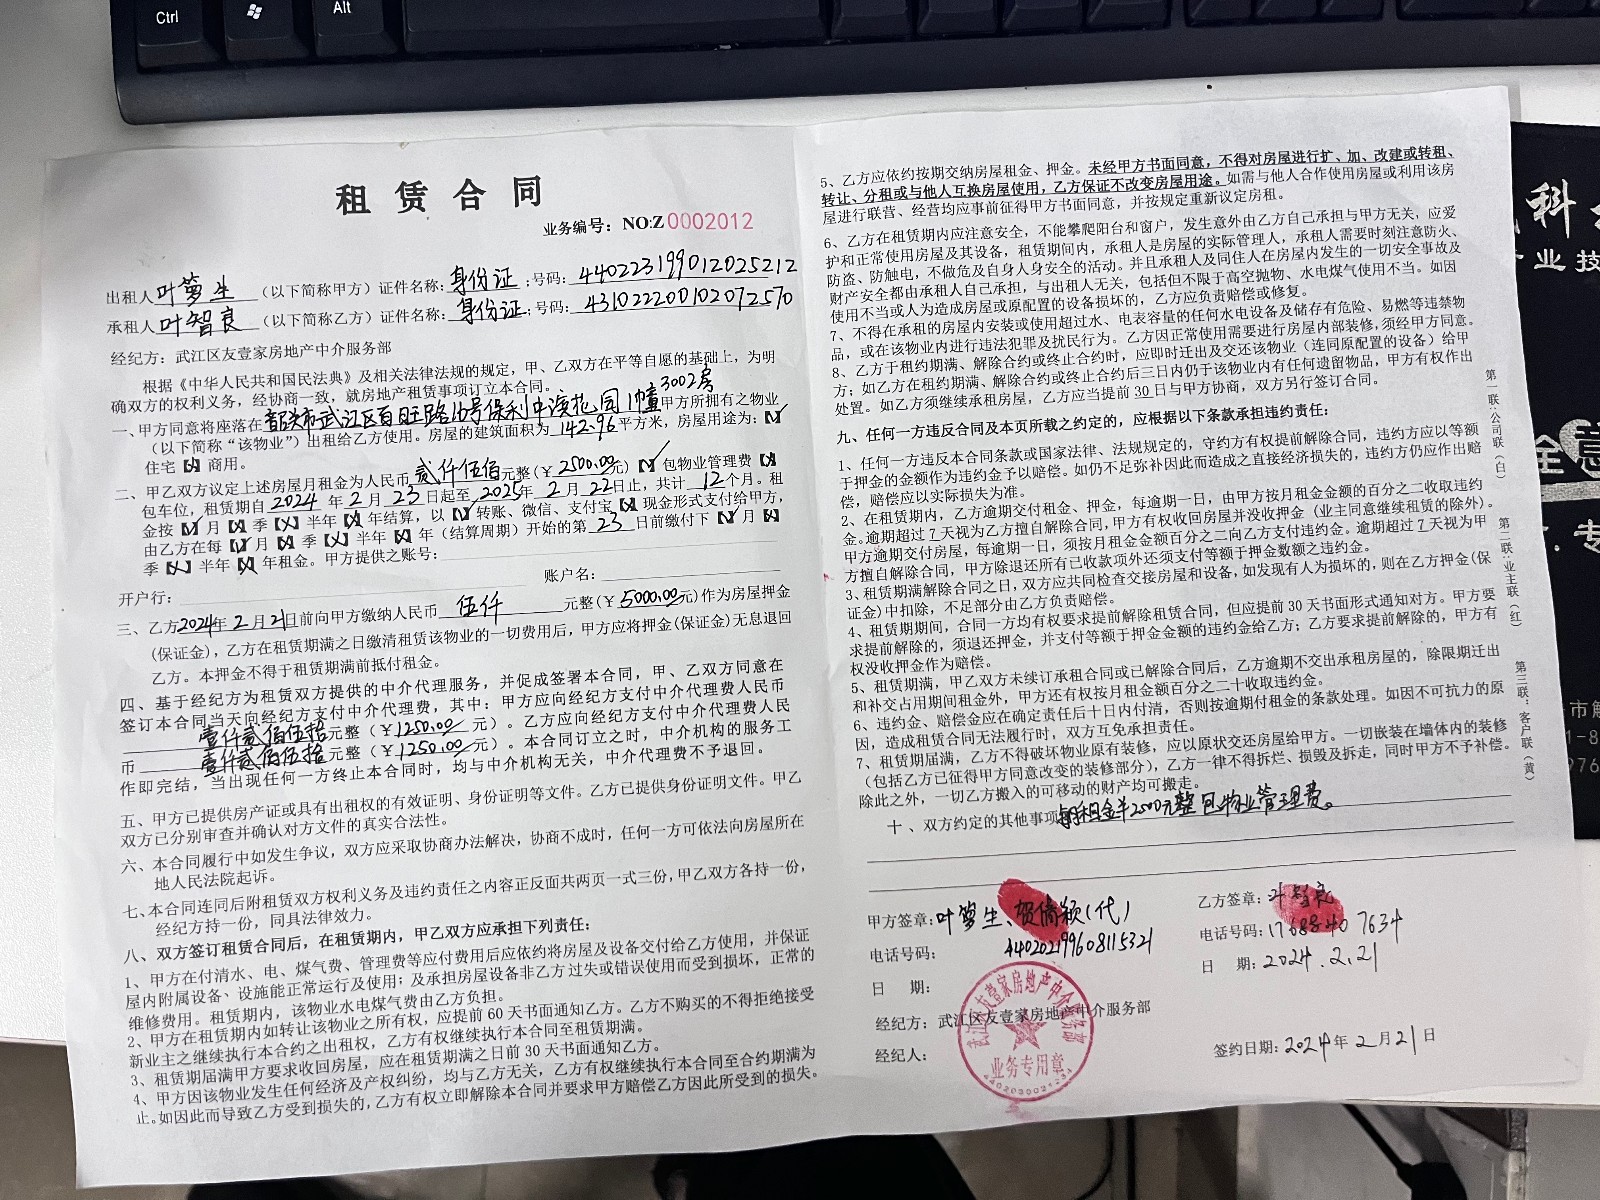 Ctrl
Alt
租 赁 合 同
业务编号：NO:Z 0002012
出租人 叶萝生 （以下简称甲方）证件名称：身份证；号码：440223199012025212
承租人 叶智良 （以下简称乙方）证件名称：身份证；号码：431022200102072570
经纪方：武江区友壹家房地产中介服务部
根据《中华人民共和国民法典》及相关法律法规的规定，甲、乙双方在平等自愿的基础上，为明
确双方的权利义务，经协商一致，就房地产租赁事项订立本合同。
3002房
一、甲方同意将座落在韶关市武江区百旺路16号保利中濠花园1幢甲方所拥有之物业
（以下简称“该物业”）出租给乙方使用。房屋的建筑面积为 142.96 平方米，房屋用途为：【√】
住宅【×】商用。
二、甲乙双方议定上述房屋月租金为人民币 贰仟伍佰 元整（¥ 2500.00 元）【√】包物业管理费【×】
包车位，租赁期自 2024 年 2 月 23 日起至 2025 年 2 月 22 日止，共计 12 个月。租
金按【√】月【×】季【×】半年【×】年结算，以【√】转账、微信、支付宝【×】现金形式支付给甲方，
由乙方在每【√】月【×】季【×】半年【×】年（结算周期）开始的第 23 日前缴付下【√】月【×】
季【×】半年【×】年租金。甲方提供之账号：
开户行： 账户名：
三、乙方 2024年 2 月 21日前向甲方缴纳人民币 伍仟 元整（¥ 5000.00 元）作为房屋押金
（保证金），乙方在租赁期满之日缴清租赁该物业的一切费用后，甲方应将押金（保证金）无息退回
乙方。本押金不得于租赁期满前抵付租金。
四、基于经纪方为租赁双方提供的中介代理服务，并促成签署本合同，甲、乙双方同意在
签订本合同当天向经纪方支付中介代理费，其中：甲方应向经纪方支付中介代理费人民币
壹仟贰佰伍拾 元整（¥ 1250.00 元）。乙方应向经纪方支付中介代理费人民
币 壹仟贰佰伍拾 元整（¥ 1250.00 元）。本合同订立之时，中介机构的服务工
作即完结，当出现任何一方终止本合同时，均与中介机构无关，中介代理费不予退回。
五、甲方已提供房产证或具有出租权的有效证明、身份证明等文件。乙方已提供身份证明文件。甲乙
双方已分别审查并确认对方文件的真实合法性。
六、本合同履行中如发生争议，双方应采取协商办法解决，协商不成时，任何一方可依法向房屋所在
地人民法院起诉。
七、本合同连同后附租赁双方权利义务及违约责任之内容正反面共两页一式三份，甲乙双方各持一份，
经纪方持一份，同具法律效力。
八、双方签订租赁合同后，在租赁期内，甲乙双方应承担下列责任：
1、甲方在付清水、电、煤气费、管理费等应付费用后应依约将房屋及设备交付给乙方使用，并保证
屋内附属设备、设施能正常运行及使用；及承担房屋设备非乙方过失或错误使用而受到损坏，正常的
维修费用。租赁期内，该物业水电煤气费由乙方负担。
2、甲方在租赁期内如转让该物业之所有权，应提前 60 天书面通知乙方。乙方不购买的不得拒绝接受
新业主之继续执行本合约之出租权，乙方有权继续执行本合同至租赁期满。
3、租赁期届满甲方要求收回房屋，应在租赁期满之日前 30 天书面通知乙方。
4、甲方因该物业发生任何经济及产权纠纷，均与乙方无关，乙方有权继续执行本合同至合约期满为
止。如因此而导致乙方受到损失的，乙方有权立即解除本合同并要求甲方赔偿乙方因此所受到的损失。
5、乙方应依约按期交纳房屋租金、押金。未经甲方书面同意，不得对房屋进行扩、加、改建或转租、
转让、分租或与他人互换房屋使用，乙方保证不改变房屋用途。如需与他人合作使用房屋或利用该房
屋进行联营、经营均应事前征得甲方书面同意，并按规定重新议定房租。
6、乙方在租赁期内应注意安全，不能攀爬阳台和窗户，发生意外由乙方自己承担与甲方无关，应爱
护和正常使用房屋及其设备，租赁期间内，承租人是房屋的实际管理人，承租人需要时刻注意防火、
防盗、防触电，不做危及自身人身安全的活动。并且承租人及同住人在房屋内发生的一切安全事故及
财产安全都由承租人自己承担，与出租人无关，包括但不限于高空抛物、水电煤气使用不当。如因
使用不当或人为造成房屋或原配置的设备损坏的，乙方应负责赔偿或修复。
7、不得在承租的房屋内安装或使用超过水、电表容量的任何水电设备及储存有危险、易燃等违禁物
品，或在该物业内进行违法犯罪及扰民行为。乙方因正常使用需要进行房屋内部装修，须经甲方同意。
8、乙方于租约期满、解除合约或终止合约时，应即时迁出及交还该物业（连同原配置的设备）给甲
方；如乙方在租约期满、解除合约或终止合约后三日内仍于该物业内有任何遗留物品，甲方有权作出
处置。如乙方须继续承租房屋，乙方应当提前 30 日与甲方协商，双方另行签订合同。
九、任何一方违反合同及本页所载之约定的，应根据以下条款承担违约责任：
1、任何一方违反本合同条款或国家法律、法规规定的，守约方有权提前解除合同，违约方应以等额
于押金的金额作为违约金予以赔偿。如仍不足弥补因此而造成之直接经济损失的，违约方仍应作出赔
偿，赔偿应以实际损失为准。
2、在租赁期内，乙方逾期交付租金、押金，每逾期一日，由甲方按月租金金额的百分之二收取违约
金。逾期超过 7 天视为乙方擅自解除合同，甲方有权收回房屋并没收押金（业主同意继续租赁的除外）。
甲方逾期交付房屋，每逾期一日，须按月租金金额百分之二向乙方支付违约金。逾期超过 7 天视为甲
方擅自解除合同，甲方除退还所有已收款项外还须支付等额于押金数额之违约金。
3、租赁期满解除合同之日，双方应共同检查交接房屋和设备，如发现有人为损坏的，则在乙方押金（保
证金）中扣除，不足部分由乙方负责赔偿。
4、租赁期期间，合同一方均有权要求提前解除租赁合同，但应提前 30 天书面形式通知对方。甲方要
求提前解除的，须退还押金，并支付等额于押金金额的违约金给乙方；乙方要求提前解除的，甲方有
权没收押金作为赔偿。
5、租赁期满，甲乙双方未续订承租合同或已解除合同后，乙方逾期不交出承租房屋的，除限期迁出
和补交占用期间租金外，甲方还有权按月租金额百分之二十收取违约金。
6、违约金、赔偿金应在确定责任后十日内付清，否则按逾期付租金的条款处理。如因不可抗力的原
因，造成租赁合同无法履行时，双方互免承担责任。
7、租赁期届满，乙方不得破坏物业原有装修，应以原状交还房屋给甲方。一切嵌装在墙体内的装修
（包括乙方已征得甲方同意改变的装修部分），乙方一律不得拆烂、损毁及拆走，同时甲方不予补偿。
除此之外，一切乙方搬入的可移动的财产均可搬走。
十、双方约定的其他事项 月租金￥2500元整包物业管理费。
甲方签章：叶萝生、贺倩颖（代）
440202199608115321
电话号码：
日 期：
经纪方：武江区友壹家房地产中介服务部
经纪人：
乙方签章：叶智良
电话号码：17688407634
日 期：2024.2.21
签约日期：2024年 2 月 21 日
武江区友壹家房地产中介服务部
业务专用章
4402030021234
第一联：公司联（白）
第二联：业主联（红）
第三联：客户联（黄）
科
业 技
全 意
专
市